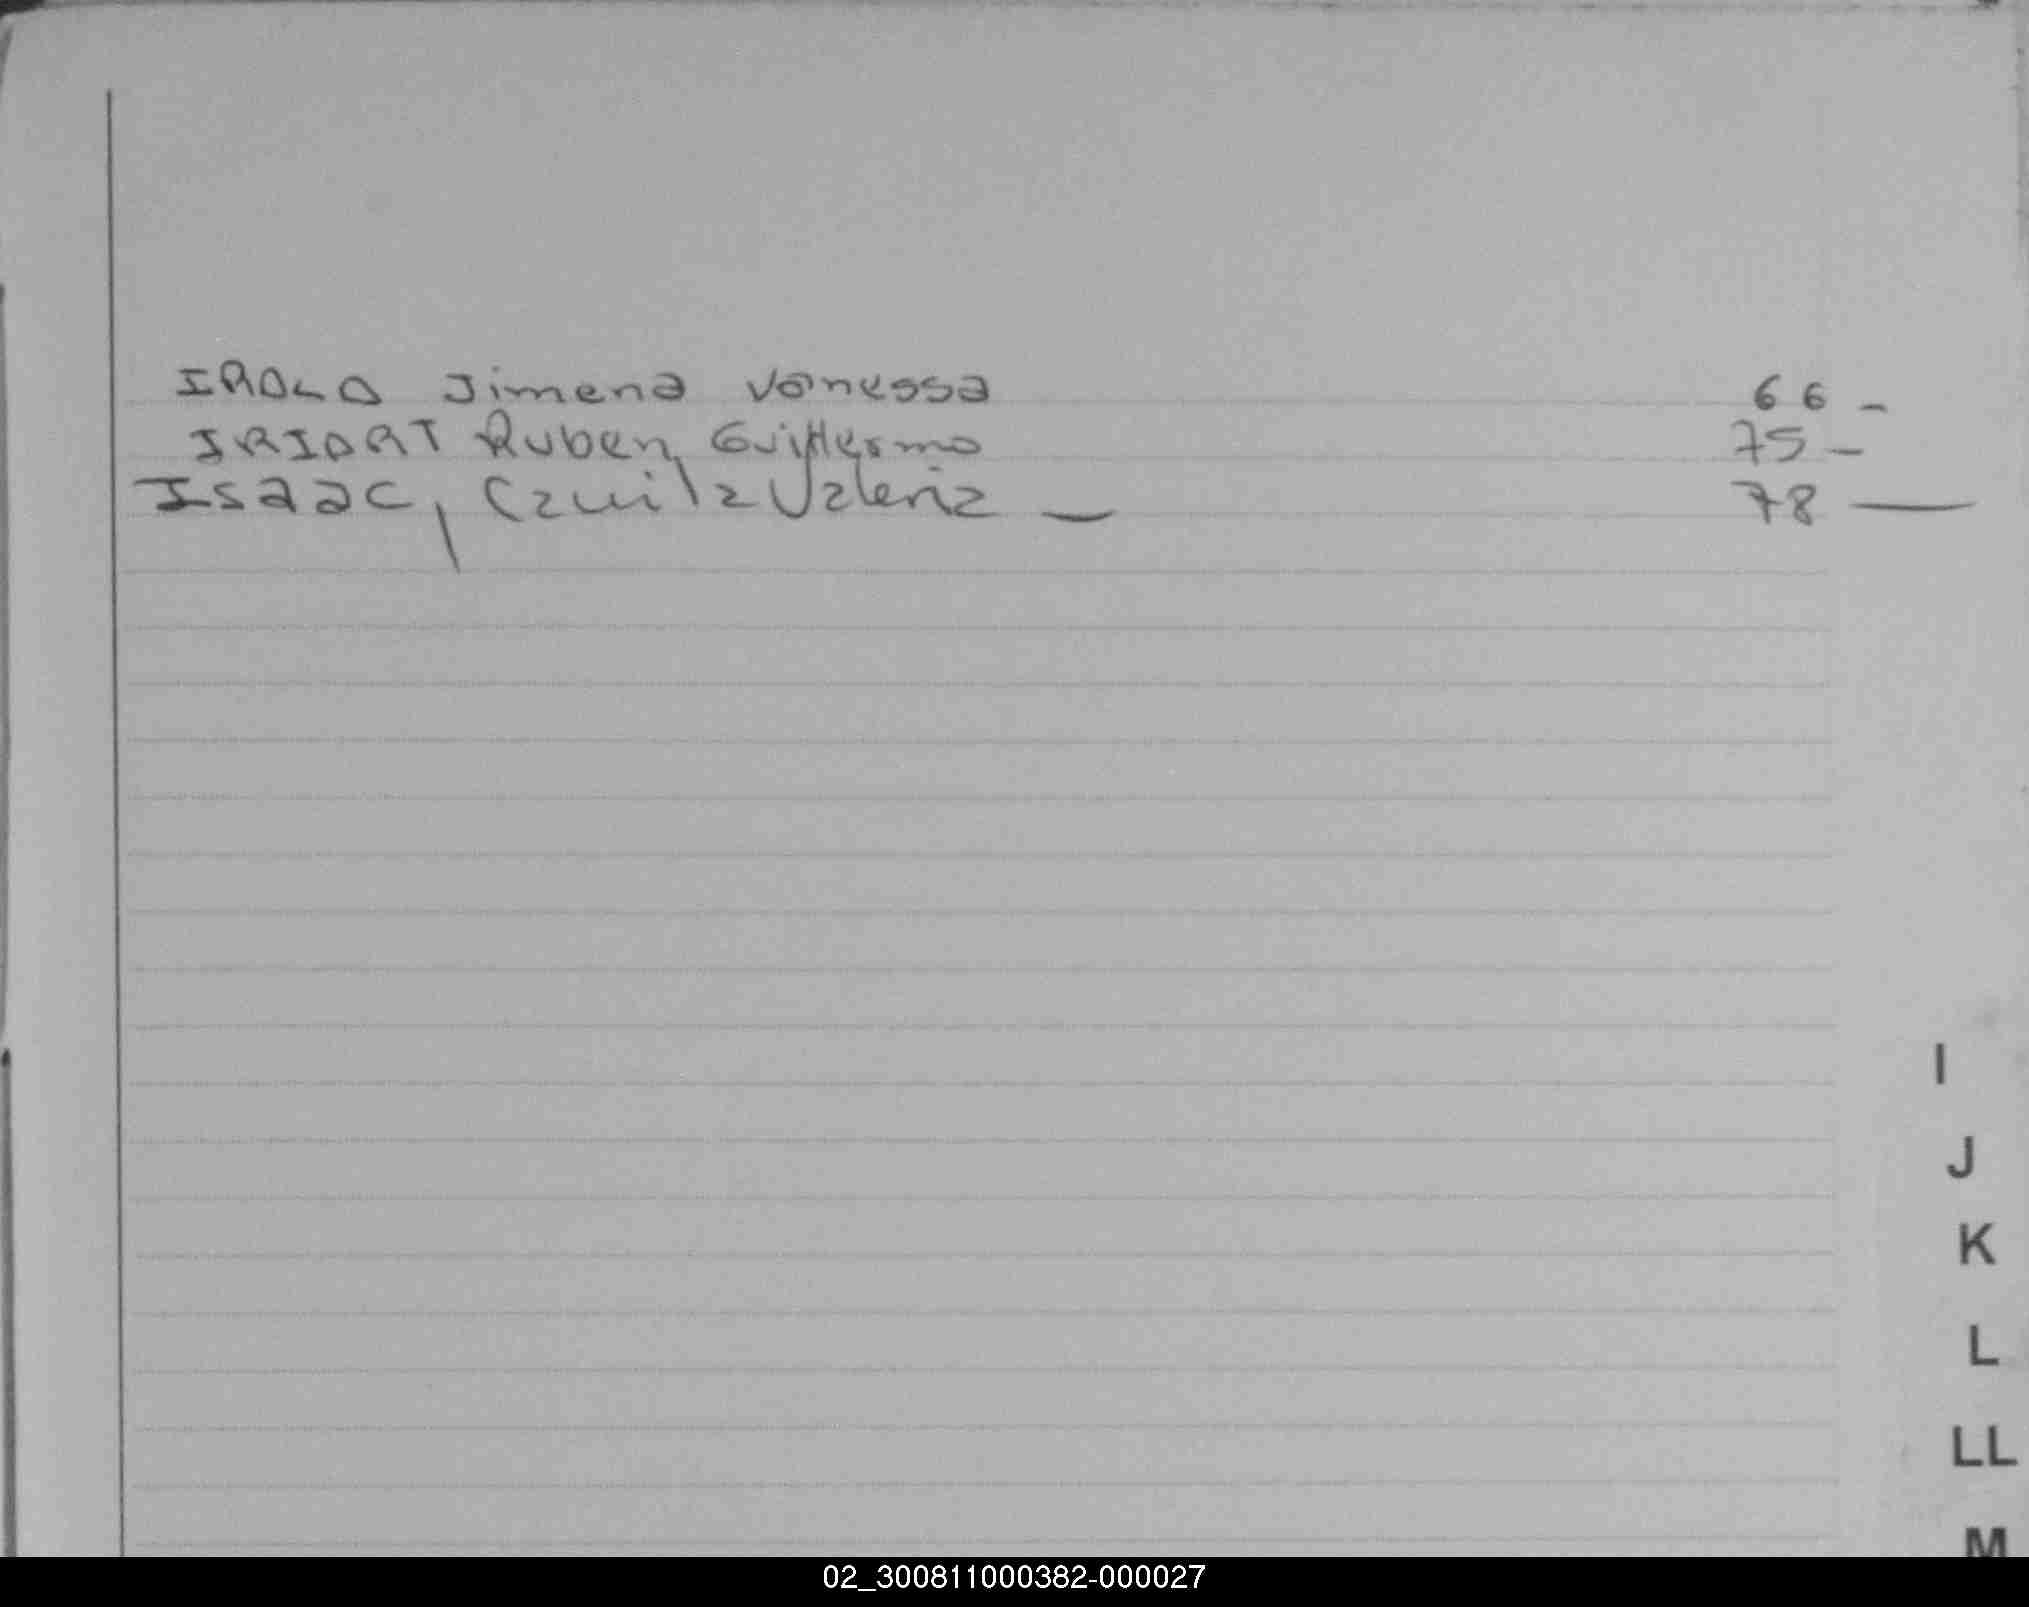 IROLA Jimena Vanessa 66 -
IRIART Ruben Guillermo 75 -
Isaac, Camila Valeria — 78 —
I
J
K
L
LL
M
02_300811000382-000027